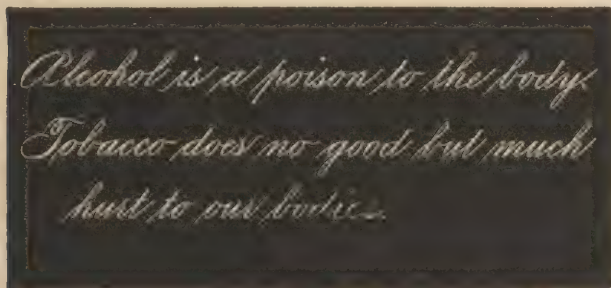 Alcohol is a poison to the body.
Tobacco does no good but much
hurt to our bodies.